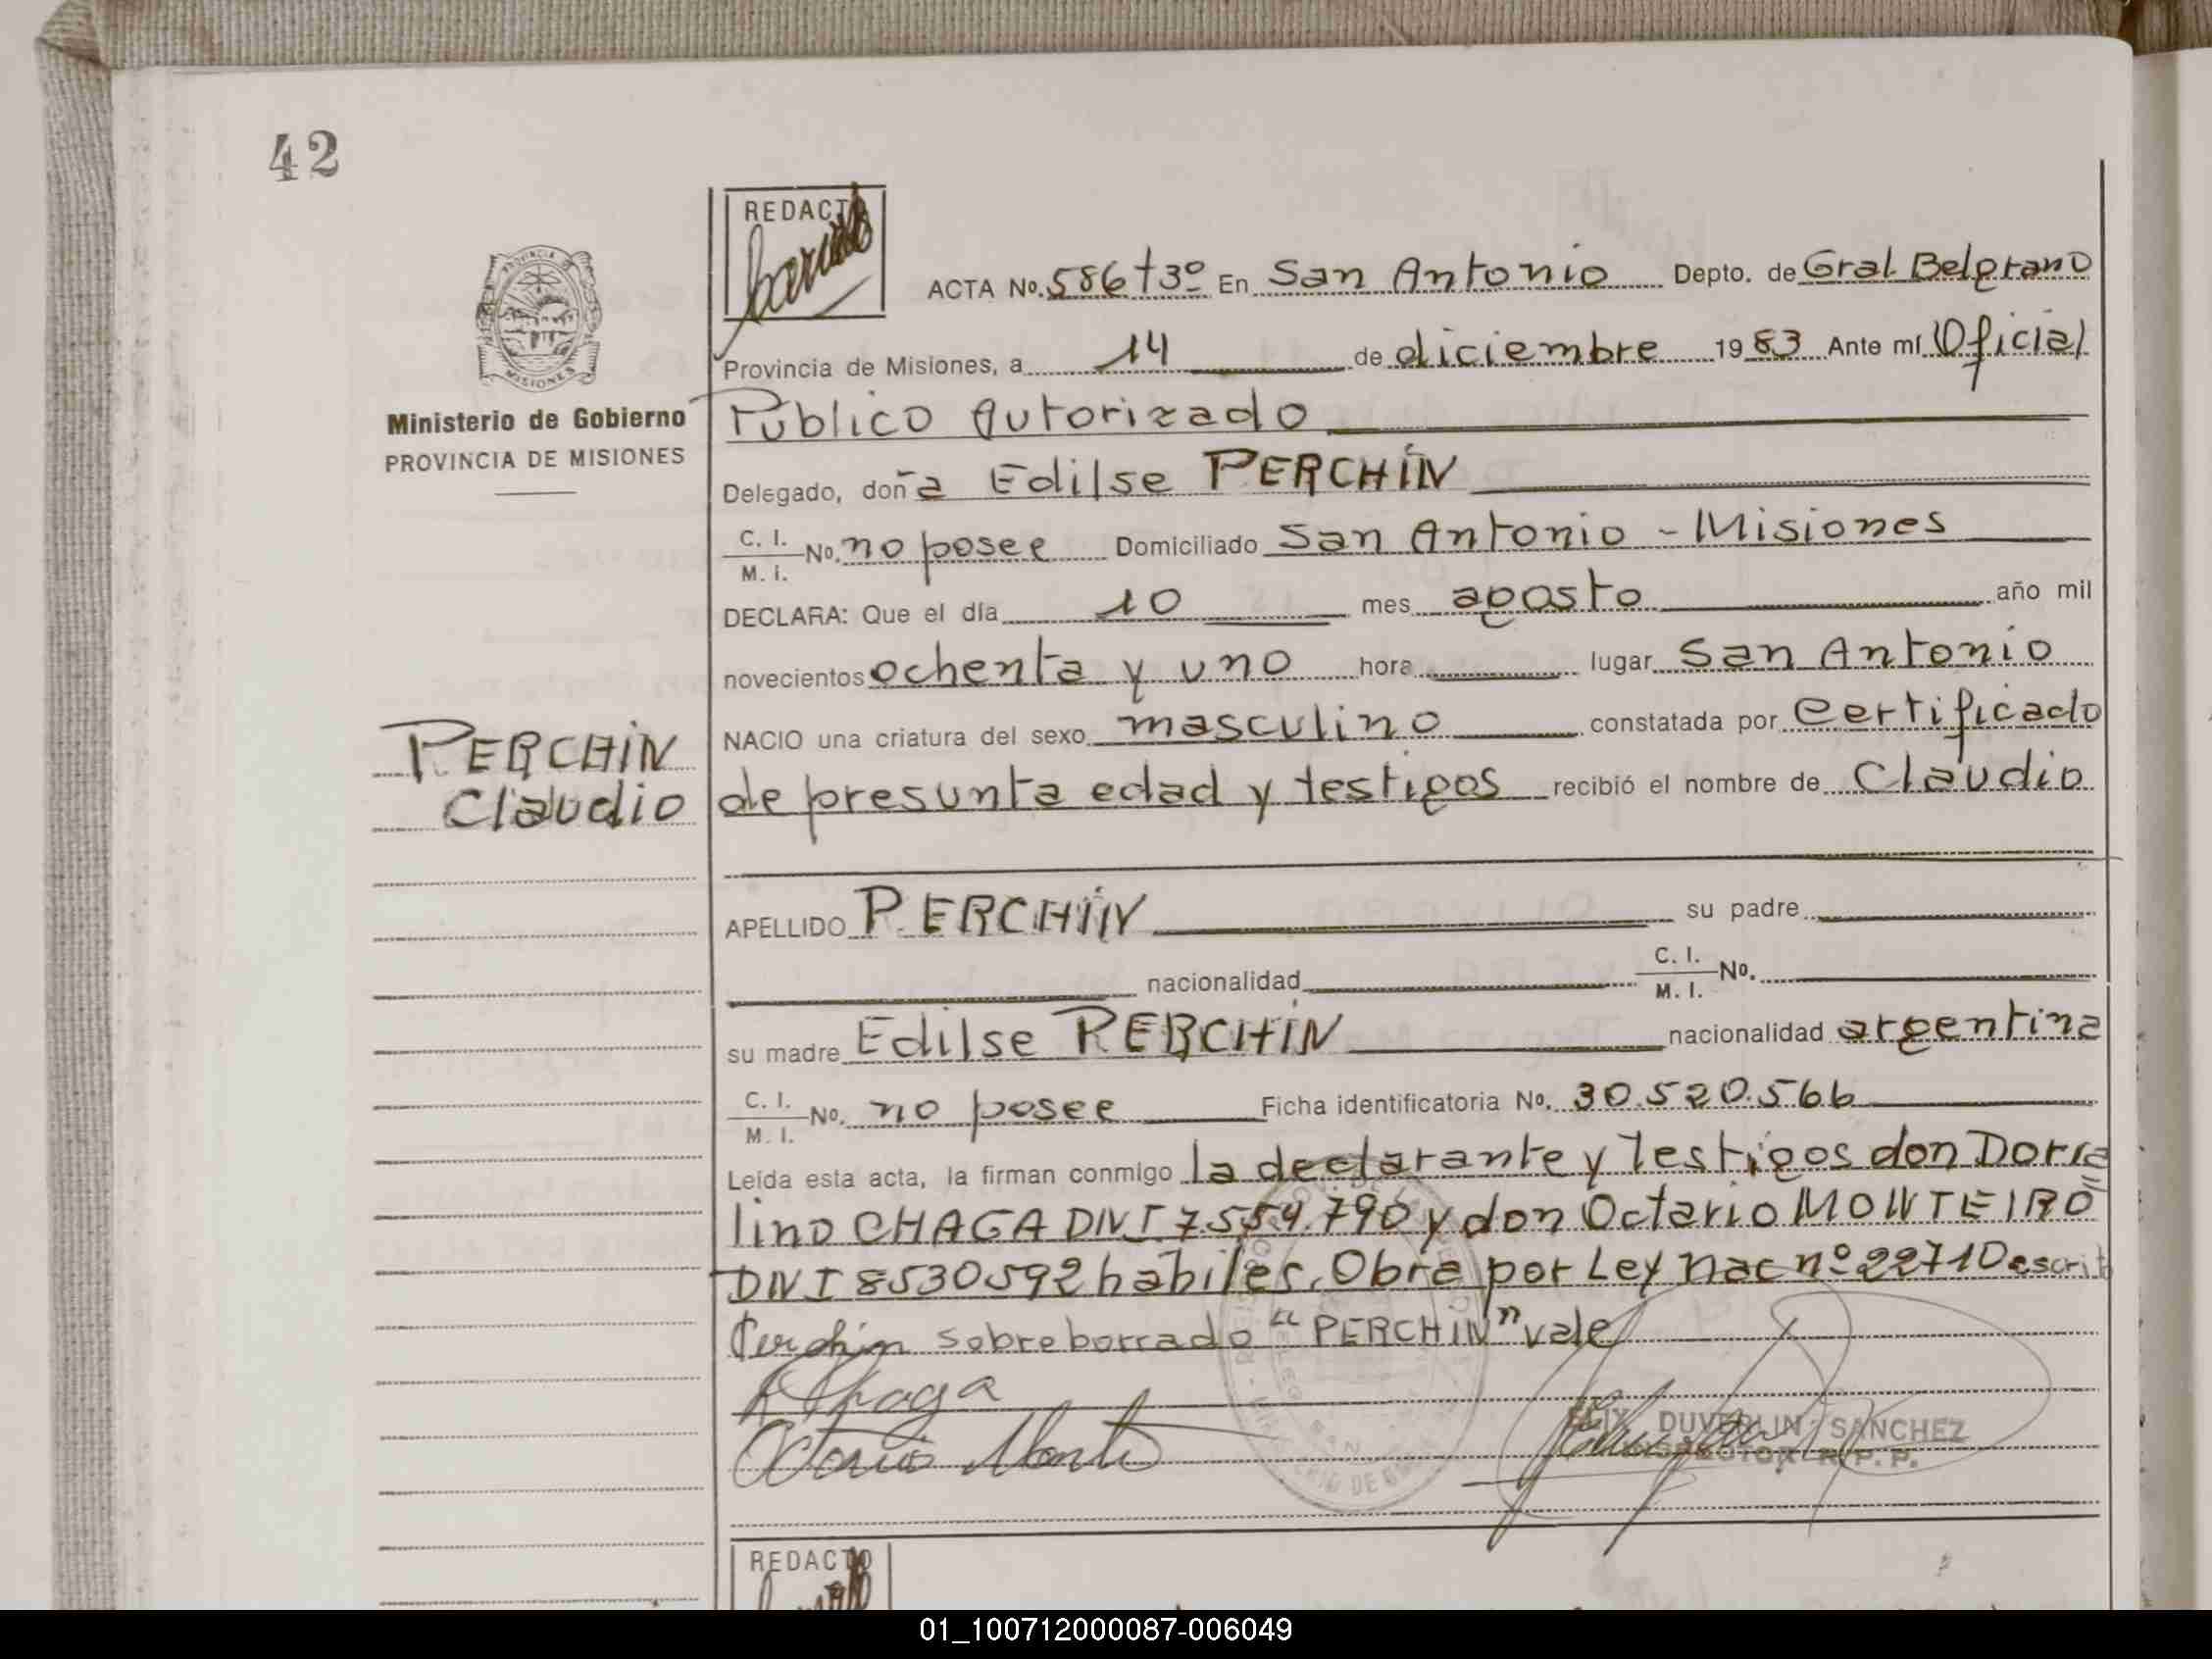 42
REDACTO
ACTA No. 586 T3º En San Antonio Depto. de Gral Belgrano
PROVINCIA DE MISIONES
Provincia de Misiones, a 14 de diciembre 1983 Ante mí Oficial
Ministerio de Gobierno
PROVINCIA DE MISIONES
Público Autorizado
Delegado, doña Edilse PERCHÍN
C. I. / M. I. No. no posee Domiciliado San Antonio - Misiones
DECLARA: Que el día 10 mes agosto año mil
novecientos ochenta y uno hora lugar San Antonio
NACIO una criatura del sexo masculino constatada por Certificado
PERCHIN
Claudio
de presunta edad y testigos recibió el nombre de Claudio
APELLIDO PERCHÍN su padre
nacionalidad C. I. / M. I. No.
su madre Edilse PERCHÍN nacionalidad argentina
C. I. / M. I. No. no posee Ficha identificatoria No. 30.520.566
Leída esta acta, la firman conmigo la declarante y testigos don Dorra
lino CHAGA DNI 7.554.790 y don Octavio MONTEIRO
DNI 8530592 habiles. Obra por Ley Nac nº 22710 escrit
Perchin sobreborrado "PERCHIN" vale
Chaga
Octavio
DUVERLIN SANCHEZ
R. P. P.
REDACTO
01_100712000087-006049